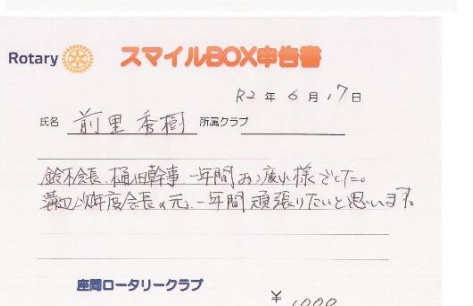 Rotary スマイルBOX申告書
R2 年 6 月 17 日
氏名 前里 秀樹 所属クラブ
鈴木会長、樋田幹事 一年間お疲れ様でした。
溝口次年度会長の元、一年間頑張りたいと思います。
座間ロータリークラブ
¥ 1000